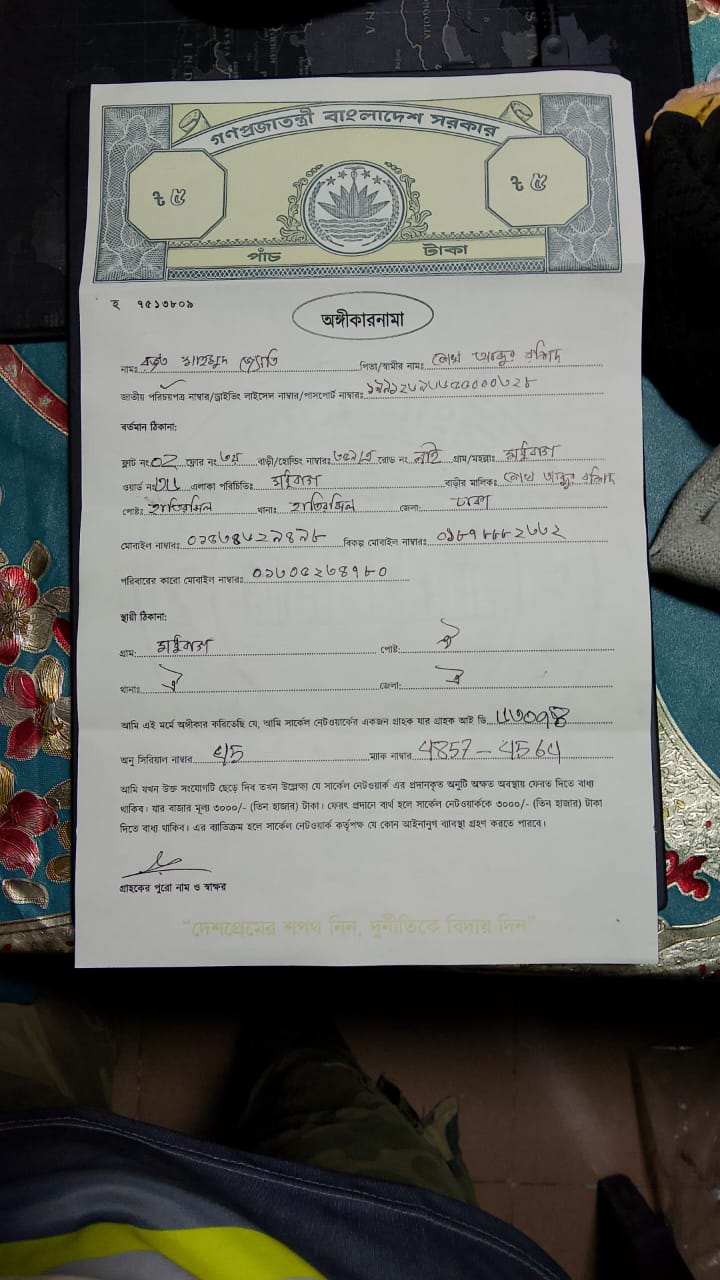 গণপ্রজাতন্ত্রী বাংলাদেশ সরকার
৳ ৫ ৳ ৫
পাঁচ টাকা
হ ৭৫১৩৮০৯
অঙ্গীকারনামা
নামঃ মাহমুদ জ্যোতি পিতা/স্বামীর নামঃ শেখ আব্দুর রশিদ
জাতীয় পরিচয়পত্র নাম্বার/ড্রাইভিং লাইসেন্স নাম্বার/পাসপোর্ট নাম্বারঃ
বর্তমান ঠিকানা:
ফ্লাট নং 02 ফ্লোর নং ৩য় বাড়ী/হোল্ডিং নাম্বারঃ রোড নং নাই গ্রাম/মহল্লাঃ
ওয়ার্ড নং এলাকা পরিচিতিঃ বাড়ীর মালিকঃ শেখ আব্দুর রশিদ
পোষ্টঃ হাতিরঝিল থানাঃ হাতিরঝিল জেলা: ঢাকা
মোবাইল নাম্বারঃ বিকল্প মোবাইল নাম্বারঃ
পরিবারের কারো মোবাইল নাম্বারঃ
স্থায়ী ঠিকানা:
গ্রাম: পোষ্ট: ঐ
থানাঃ ঐ জেলা: ঐ
আমি এই মর্মে অঙ্গীকার করিতেছি যে, আমি সার্কেল নেটওয়ার্কের একজন গ্রাহক যার গ্রাহক আই ডি
অনু সিরিয়াল নাম্বার ম্যাক নাম্বার 4857-4564
আমি যখন উক্ত সংযোগটি ছেড়ে দিব তখন উল্লেক্ষ্য যে সার্কেল নেটওয়ার্ক এর প্রদানকৃত অনুটি অক্ষত অবস্থায় ফেরত দিতে বাধ্য
থাকিব। যার বাজার মূল্য ৩০০০/- (তিন হাজার) টাকা। ফেরৎ প্রদানে ব্যর্থ হলে সার্কেল নেটওয়ার্ককে ৩০০০/- (তিন হাজার) টাকা
দিতে বাধ্য থাকিব। এর ব্যতিক্রম হলে সার্কেল নেটওয়ার্ক কর্তৃপক্ষ যে কোন আইনানুগ ব্যাবস্থা গ্রহণ করতে পারবে।
গ্রাহকের পুরো নাম ও স্বাক্ষর
"দেশপ্রেমের শপথ নিন, দুর্নীতিকে বিদায় দিন"